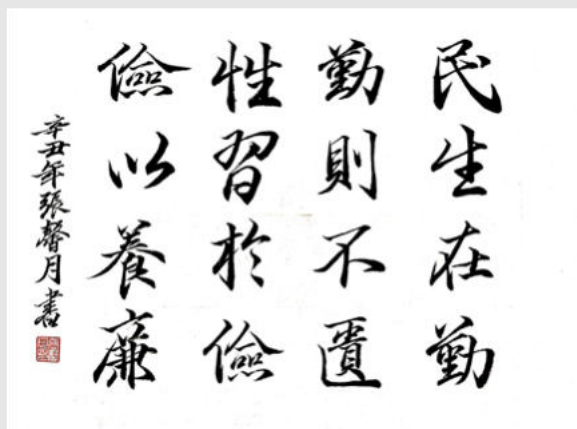 民生在勤
勤則不匱
性習於儉
儉以養廉
辛丑年張馨月書